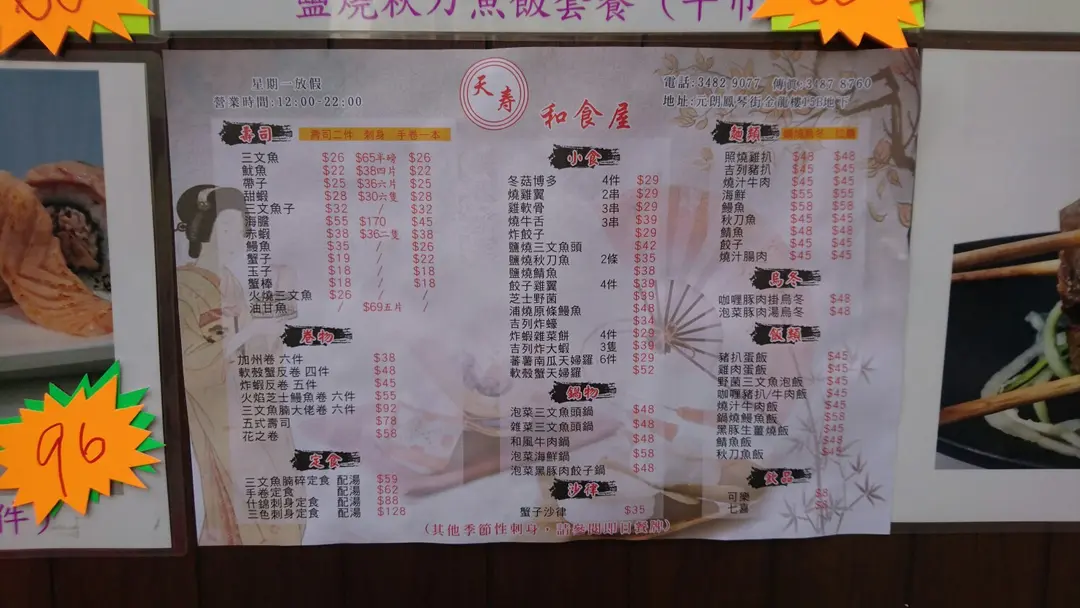 鹽燒秋刀魚飯套餐
星期一放假
營業時間:12:00-22:00
天壽
和食屋
電話:3482 9077 傳真:3487 8760
地址:元朗鳳琴街金龍樓15B地下
壽司 壽司二件 刺身 手卷一本
三文魚 $26 $65半磅 $26
魷魚 $22 $38四片 $22
帶子 $25 $36六片 $25
甜蝦 $28 $30六隻 $28
三文魚子 $32 / $32
海膽 $55 $170 $45
赤蝦 $38 $36二隻 $38
鰻魚 $35 / $26
蟹子 $19 / $22
玉子 $18 / $18
蟹棒 $18 / $18
火燒三文魚 $26 / /
油甘魚 / $69五片 /
卷物
加州卷 六件 $38
軟殼蟹反卷 四件 $48
炸蝦反卷 五件 $45
火焰芝士鰻魚卷 六件 $55
三文魚腩大佬卷 六件 $92
五式壽司 $78
花之卷 $58
定食
三文魚腩碎定食 配湯 $59
手卷定食 配湯 $62
什錦刺身定食 配湯 $88
三色刺身定食 配湯 $128
小食
冬菇博多 4件 $29
燒雞翼 2串 $29
雞軟骨 3串 $29
燒牛舌 3串 $39
炸餃子 $29
鹽燒三文魚頭 $42
鹽燒秋刀魚 2條 $35
鹽燒鯖魚 $38
餃子雞翼 4件 $39
芝士野菌 $39
浦燒原條鰻魚 $48
吉列炸蠔 $34
炸蝦雜菜餅 4件 $29
吉列炸大蝦 3隻 $39
蕃薯南瓜天婦羅 6件 $29
軟殼蟹天婦羅 $52
鍋物
泡菜三文魚頭鍋 $48
雜菜三文魚頭鍋 $48
和風牛肉鍋 $48
泡菜海鮮鍋 $58
泡菜黑豚肉餃子鍋 $48
沙律
蟹子沙律 $35
麵類
照燒雞扒 $48 $48
吉列豬扒 $45 $45
燒汁牛肉 $45 $45
海鮮 $55 $55
鰻魚 $58 $58
秋刀魚 $45 $45
鯖魚 $48 $48
餃子 $45 $45
燒汁腸肉 $45 $45
烏冬
咖喱豚肉掛烏冬 $48
泡菜豚肉湯烏冬 $48
飯類
豬扒蛋飯 $45
雞肉蛋飯 $45
野菌三文魚泡飯 $45
咖喱豬扒/牛肉飯 $45
燒汁牛肉飯 $45
鍋燒鰻魚飯 $58
黑豚生薑燒飯 $45
鯖魚飯 $48
秋刀魚飯 $45
飲品
可樂 $8
七喜
(其他季節性刺身，請參閱即日餐牌)
96
件)